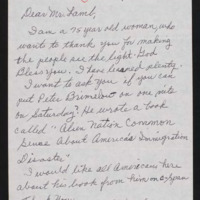 Dear Mr. Lamb,
I am a 75 year old woman, who
want to thank you for making
the people see the light. God
Bless you. I have learned plenty.
I want to ask you if you can
put Peter Brimelow on one nite
on Saturday? He wrote a book
called "Alien Nation Common
Sense About America's Immigration
Disaster."
I would like all Americans hear
about his book from him on cSpan